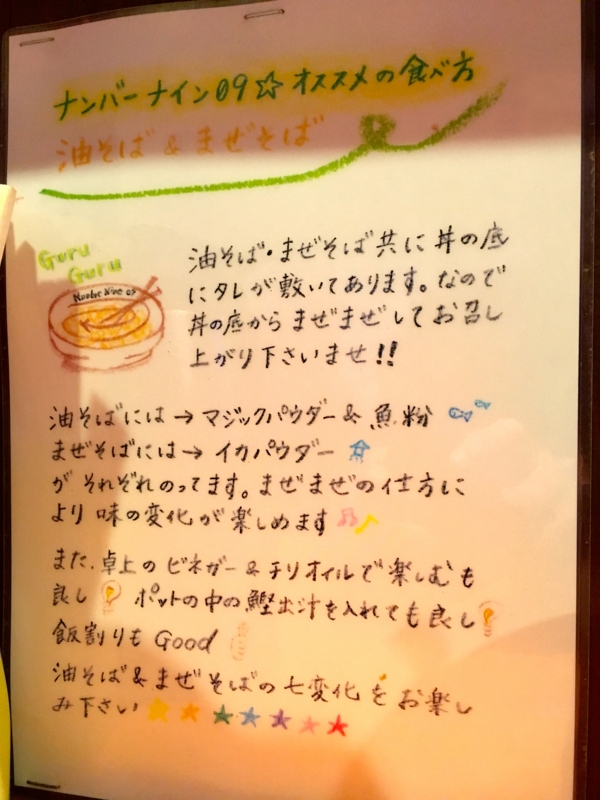 ナンバーナイン09☆オススメの食べ方
油そば&まぜそば
Guru
Guru
Number Nine 09
油そば・まぜそば共に丼の底
にタレが敷いてあります。なので
丼の底からまぜまぜしてお召し
上がり下さいませ!!
油そばには→マジックパウダー&魚粉
まぜそばには→イカパウダー
がそれぞれのってます。まぜまぜの仕方に
より味の変化が楽しめます♪
また、卓上のビネガー&チリオイルで楽しむも
良し ポットの中の鰹出汁を入れても良し
飯割りもGood
油そば&まぜそばの七変化をお楽し
み下さい★★★★★★★